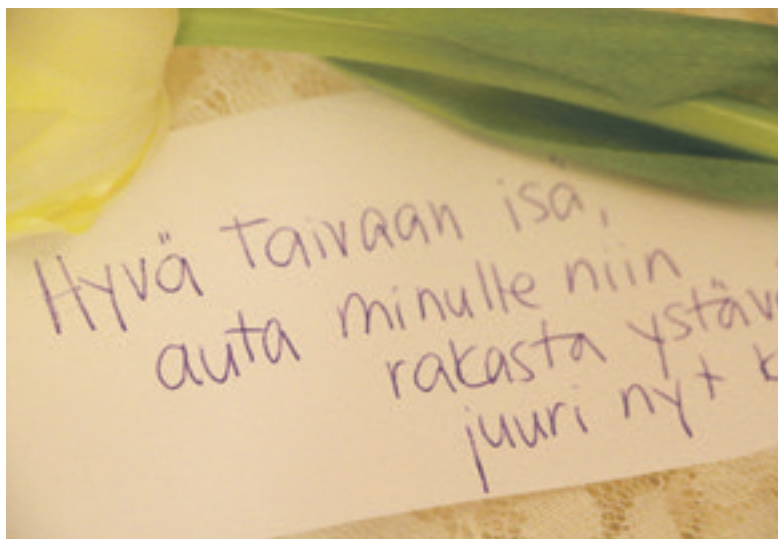 Hyvä Taivaan isä,
auta minulle niin
rakasta ystäv
juuri nyt k